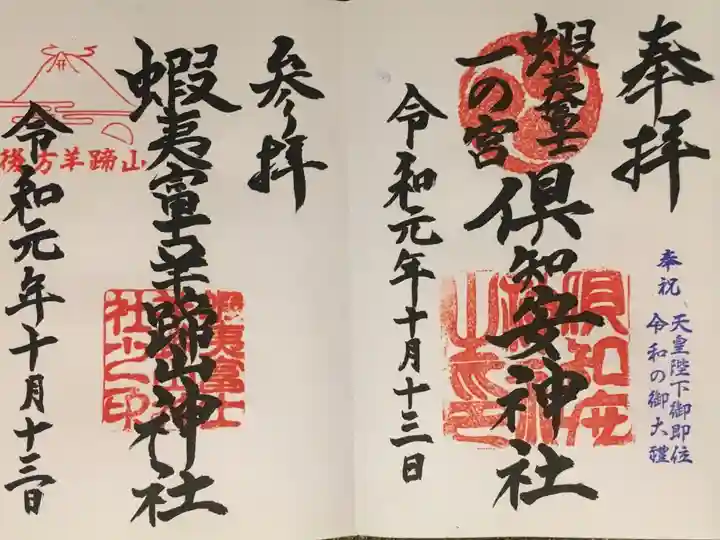 奉拝
蝦夷富士
一の宮
倶知安神社
令和元年十月十三日
奉祝
天皇陛下御即位
令和の御大禮
参拝
蝦夷富士羊蹄山神社
令和元年十月十三日
後方羊蹄山